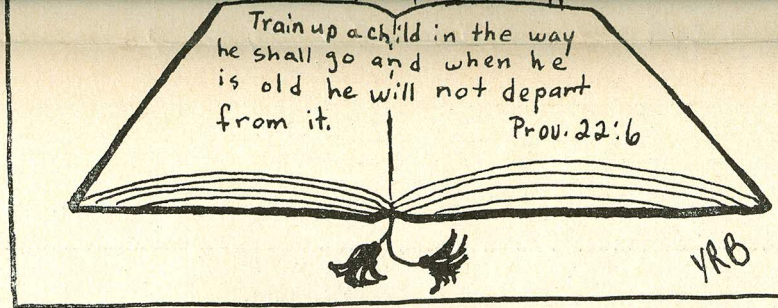 Train up a child in the way
he shall go and when he
is old he will not depart
from it. Prov. 22:6
YRB